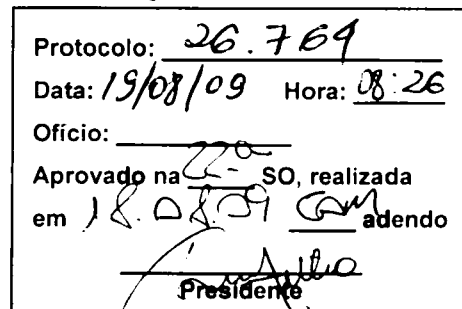 Protocolo: 26.764
Data: 19/08/09 Hora: 08:26
Ofício:
Aprovado na 22.ª SO, realizada
em 18.08.09 com adendo
Presidente